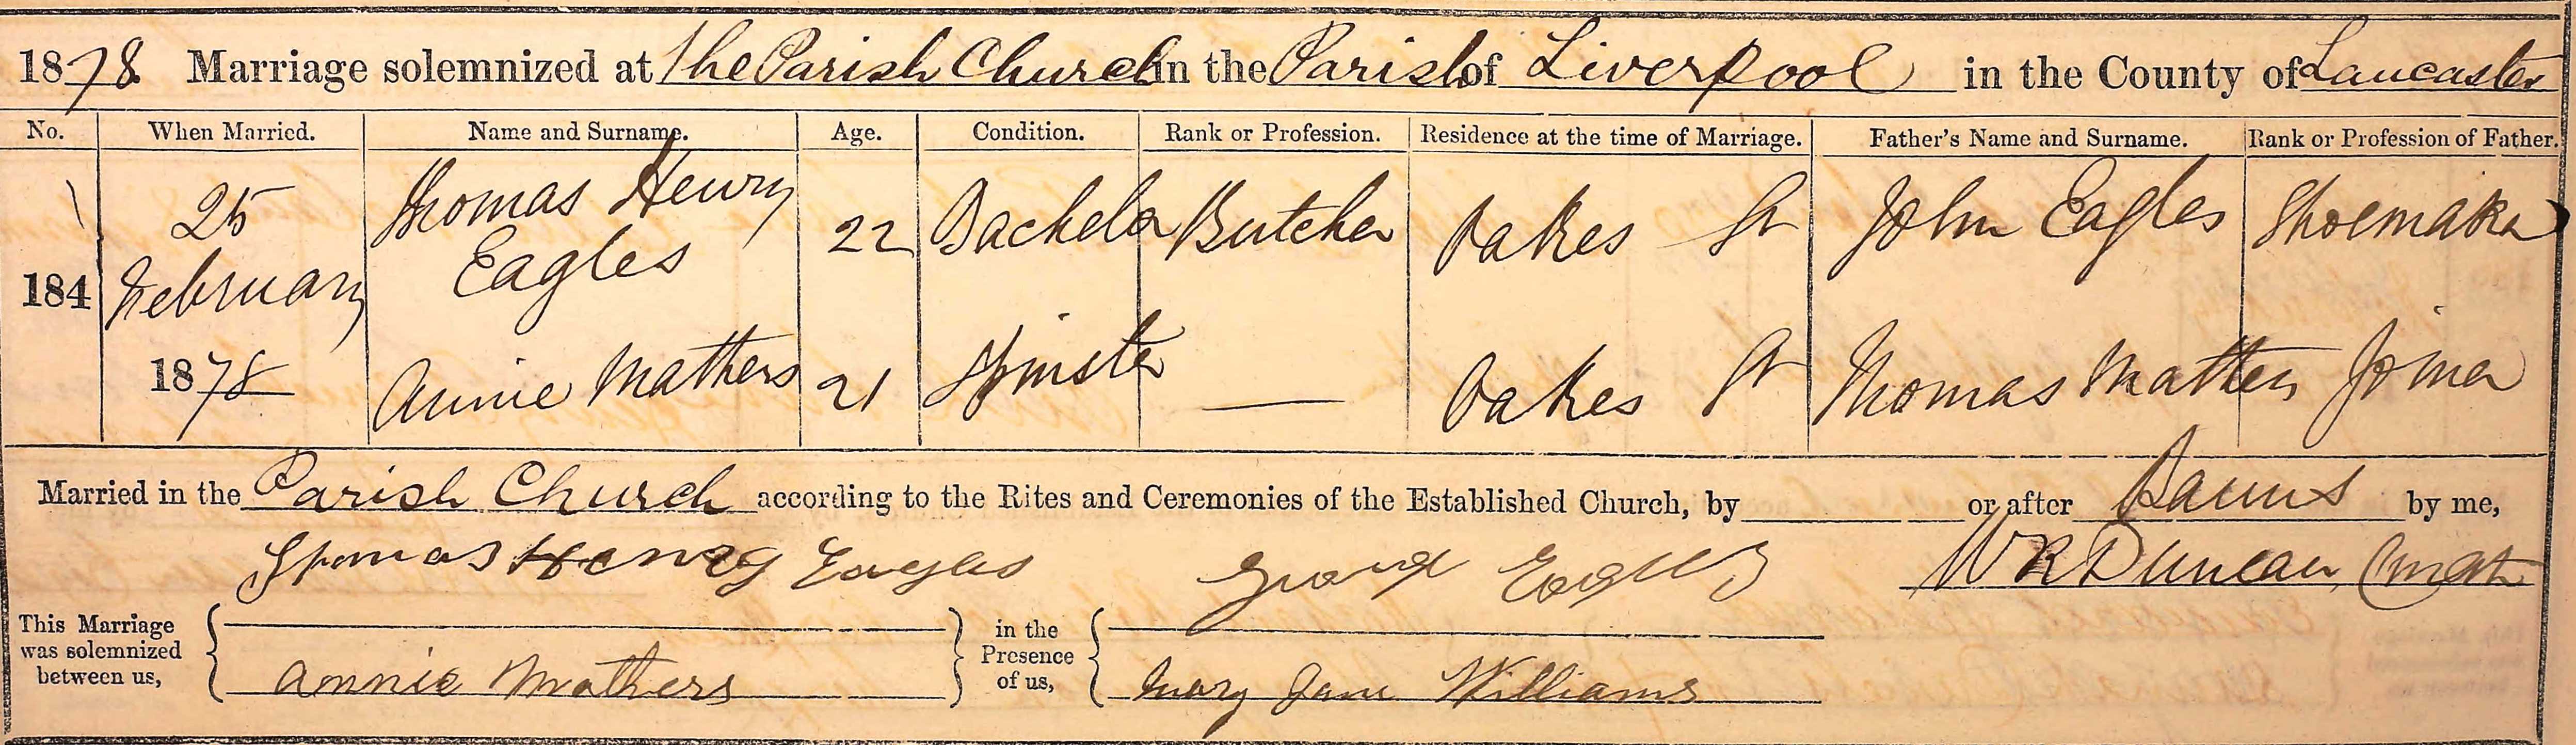 1878. Marriage solemnized at The Parish Church in the Parish of Liverpool in the County of Lancaster
No. When Married. Name and Surname. Age. Condition. Rank or Profession. Residence at the time of Marriage. Father's Name and Surname. Rank or Profession of Father.
184 25 February 1878 Thomas Henry Eagles 22 Bachelor Butcher Oakes St John Eagles Shoemaker
Annie Mathers 21 Spinster — Oakes St Thomas Mathers Joiner
Married in the Parish Church according to the Rites and Ceremonies of the Established Church, by or after Banns by me,
Thomas Henry Eagles George Eagles W R Duncan, Curate
This Marriage was solemnized between us, Annie Mathers in the Presence of us, Mary Jane Williams